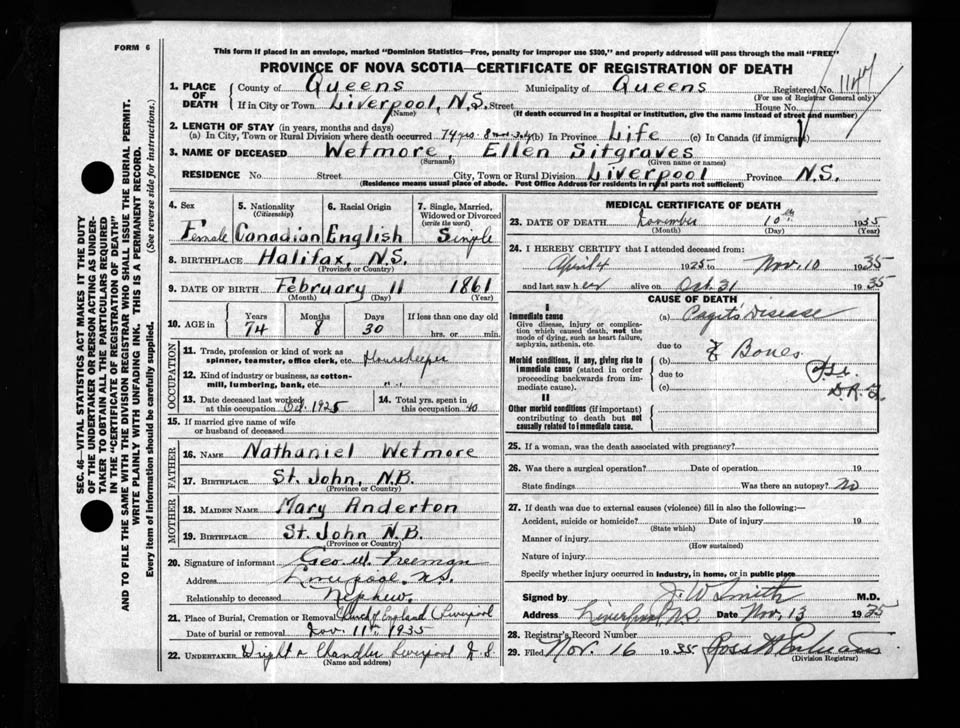 FORM 6
This form if placed in an envelope, marked "Dominion Statistics—Free, penalty for improper use $300," and properly addressed will pass through the mail "FREE"
PROVINCE OF NOVA SCOTIA—CERTIFICATE OF REGISTRATION OF DEATH
SEC. 46—VITAL STATISTICS ACT MAKES IT THE DUTY
OF THE UNDERTAKER OR PERSON ACTING AS UNDER-
TAKER TO OBTAIN ALL THE PARTICULARS REQUIRED
IN THE "CERTIFICATE OF REGISTRATION OF DEATH"
AND TO FILE THE SAME WITH THE DIVISION REGISTRAR WHO SHALL ISSUE THE BURIAL PERMIT.
WRITE PLAINLY WITH UNFADING INK. THIS IS A PERMANENT RECORD.
Every item of information should be carefully supplied. (See reverse side for instructions.)
1. PLACE OF DEATH
County of Queens Municipality of Queens Registered No.
(For use of Registrar General only)
If in City or Town Liverpool, N.S. Street House No.
(Name) (If death occurred in a hospital or institution, give name instead of street and number)
2. LENGTH OF STAY (in years, months and days)
(a) In City, Town or Rural Division where death occurred 74 yrs. 8 (b) In Province Life (c) In Canada (if immigrant)
3. NAME OF DECEASED Wetmore, Ellen Sitgraves
(Surname) (Given name or names)
RESIDENCE No. Street City, Town or Rural Division Liverpool Province N.S.
(Residence means usual place of abode. Post Office Address for residents in rural parts not sufficient)
4. Sex
Female
5. Nationality
(Citizenship)
Canadian
6. Racial Origin
English
7. Single, Married, Widowed or Divorced
(write the word)
Single
8. BIRTHPLACE Halifax, N.S.
(Province or Country)
9. DATE OF BIRTH February 11 1861
(Month) (Day) (Year)
10. AGE in
Years Months Days If less than one day old
74 8 30 hrs. or min.
OCCUPATION
11. Trade, profession or kind of work as
spinner, teamster, office clerk, etc. Housekeeper
12. Kind of industry or business, as cotton-
mill, lumbering, bank, etc. " "
13. Date deceased last worked
at this occupation Oct. 1925
14. Total yrs. spent in
this occupation 40
15. If married give name of wife
or husband of deceased
FATHER
16. NAME Nathaniel Wetmore
17. BIRTHPLACE St. John, N.B.
(Province or Country)
MOTHER
18. MAIDEN NAME Mary Anderton
19. BIRTHPLACE St. John N.B.
(Province or Country)
20. Signature of informant Geo. W. Freeman
Address Liverpool, N.S.
Relationship to deceased Nephew
21. Place of Burial, Cremation or Removal Church of England Liverpool
Date of burial or removal Nov. 11th 1935
22. UNDERTAKER Wright & Chandler Liverpool N.S.
(Name and address)
MEDICAL CERTIFICATE OF DEATH
23. DATE OF DEATH November 10th 1935
(Month) (Day) (Year)
24. I HEREBY CERTIFY that I attended deceased from:
April 4 1925 to Nov. 10 1935
and last saw her alive on Oct. 31 1935
CAUSE OF DEATH
I
Immediate cause
Give disease, injury or complica-
tion which caused death, not the
mode of dying, such as heart failure,
asphyxia, asthenia, etc.
(a) Paget's Disease
due to of Bones
Morbid conditions, if any, giving rise to
immediate cause (stated in order
proceeding backwards from im-
mediate cause).
(b)
due to
(c)
II
Other morbid conditions (if important)
contributing to death but not
causally related to immediate cause.
25. If a woman, was the death associated with pregnancy?
26. Was there a surgical operation? Date of operation 19
State findings Was there an autopsy? No
27. If death was due to external causes (violence) fill in also the following:—
Accident, suicide or homicide? Date of injury 19
(State which)
Manner of injury
(How sustained)
Nature of injury
Specify whether injury occurred in industry, in home, or in public place
Signed by J. W. Smith M.D.
Address Liverpool, N.S. Date Nov. 13 1935
28. Registrar's Record Number
29. Filed Nov. 16 1935
(Division Registrar)